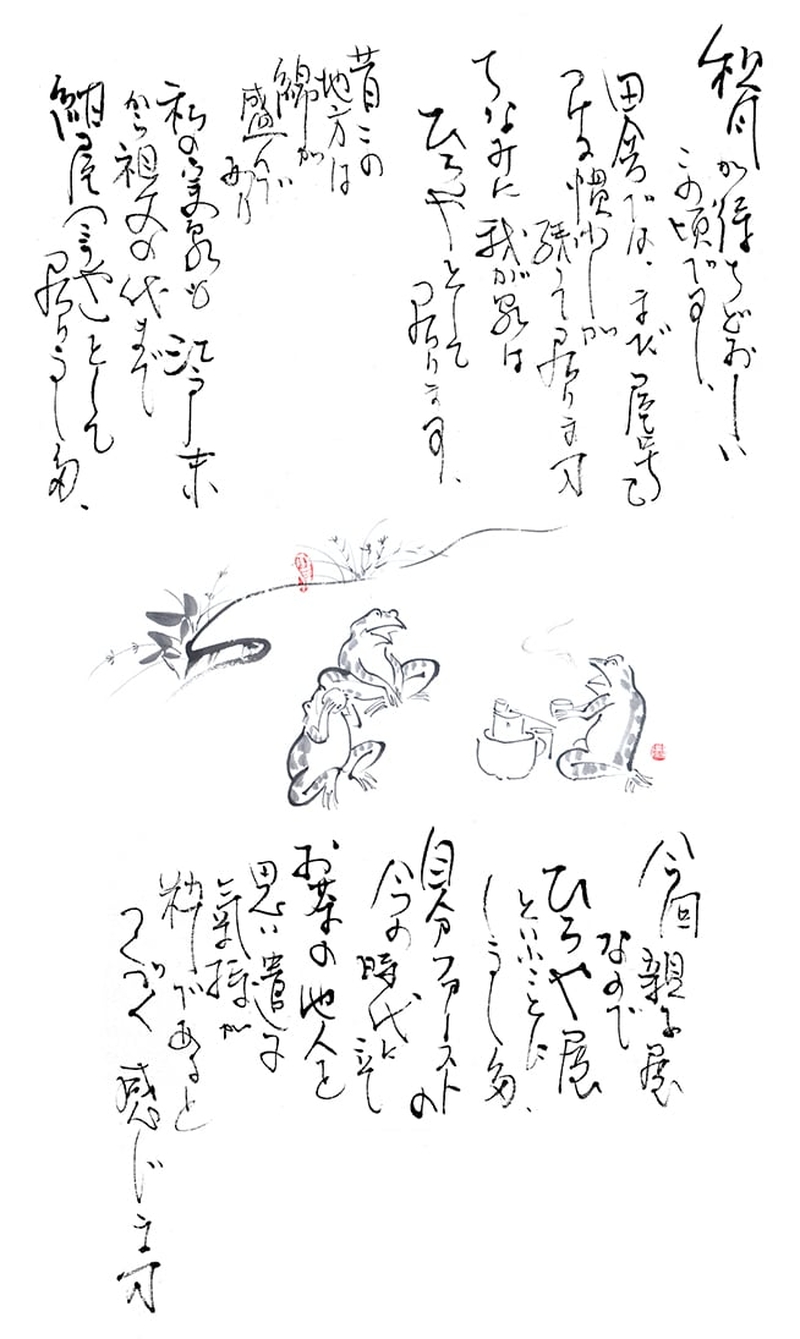 秋が待ちどおしい
この頃です、
田舎では、まだ屋号を
つける慣わしが
残って居ります
ちなみに我が家は
ひろやとして
居ります、
昔この
地方は
綿が
盛んで
あり
私の実家も江戸末
から祖父の代まで
紺屋(こうや)として
居りました、
今回親子展
なので
ひろや展
ということに
しました、
自分ファーストの
今の時代に立って
お茶の他人を
思い遣る
氣持が
粋であると
つくづく感じます